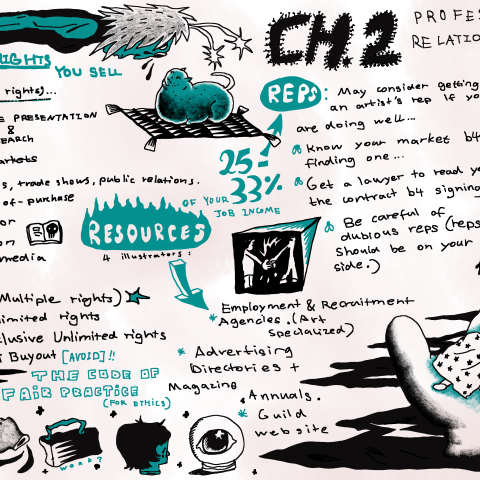 CH. 2
PROFES
RELATIO
RIGHTS
YOU SELL
rights)...
E PRESENTATION
&
EARCH
arkets
s, trade shows, public relations.
of-purchase
or
on
media
Multiple rights)
limited rights
clusive Unlimited rights
Buyout [AVOID]!!
THE CODE OF
FAIR PRACTICE
(FOR ETHICS)
WORK?
25-
33%
OF YOUR
JOB INCOME
RESOURCES
4 illustrators:
Employment & Recruitment
Agencies. (Art
Specialized)
Advertising
Directories +
Magazine
Annuals.
Guild
website
REPS:
May consider getting
an artist's rep if yo
are doing well...
Know your market b4
finding one...
Get a lawyer to read yo
the contract b4 signing
Be careful of
dubious reps (reps
should be on your
side.)